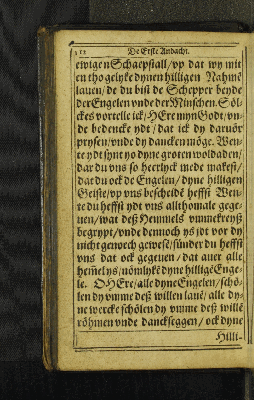 De Erste Andacht.
ewigen Schaepstall / vp dat wy mit
en tho gelyke dynen hilligen Nahmē
lauen / de du bist de Schepper beyde
der Engelen vnde der Minschen. Söl-
ckes vortelle ick / HEre myn Godt / vn-
de bedencke ydt / dat ick dy daruör
prysen / vnde dy dancken möge. Wen-
te ydt synt yo dyne groten woldaden /
dar du vns so heerlyck mede makest /
dat du ock de Engelen / dyne hilligen
Geiste / vp vns bescheidē heffst Wen-
te du heffst ydt vns allthomale gege-
uen / wat deß Hemmels vmmekreyß
begrypt / vnde dennoch ys jdt vor dy
nicht genoech gewesē / sünder du heffst
vns dat ock gegeuen / dat auer alle
hem̄el ys / nömlykē dyne hilligē Enge-
le. O HEre / alle dyne Engelen / schö-
len dy vmme deß willen lauē / alle dy-
ne wercke schölen dy vmme deß willē
röhmen vnde danckseggen / ock dyne
Hilli-